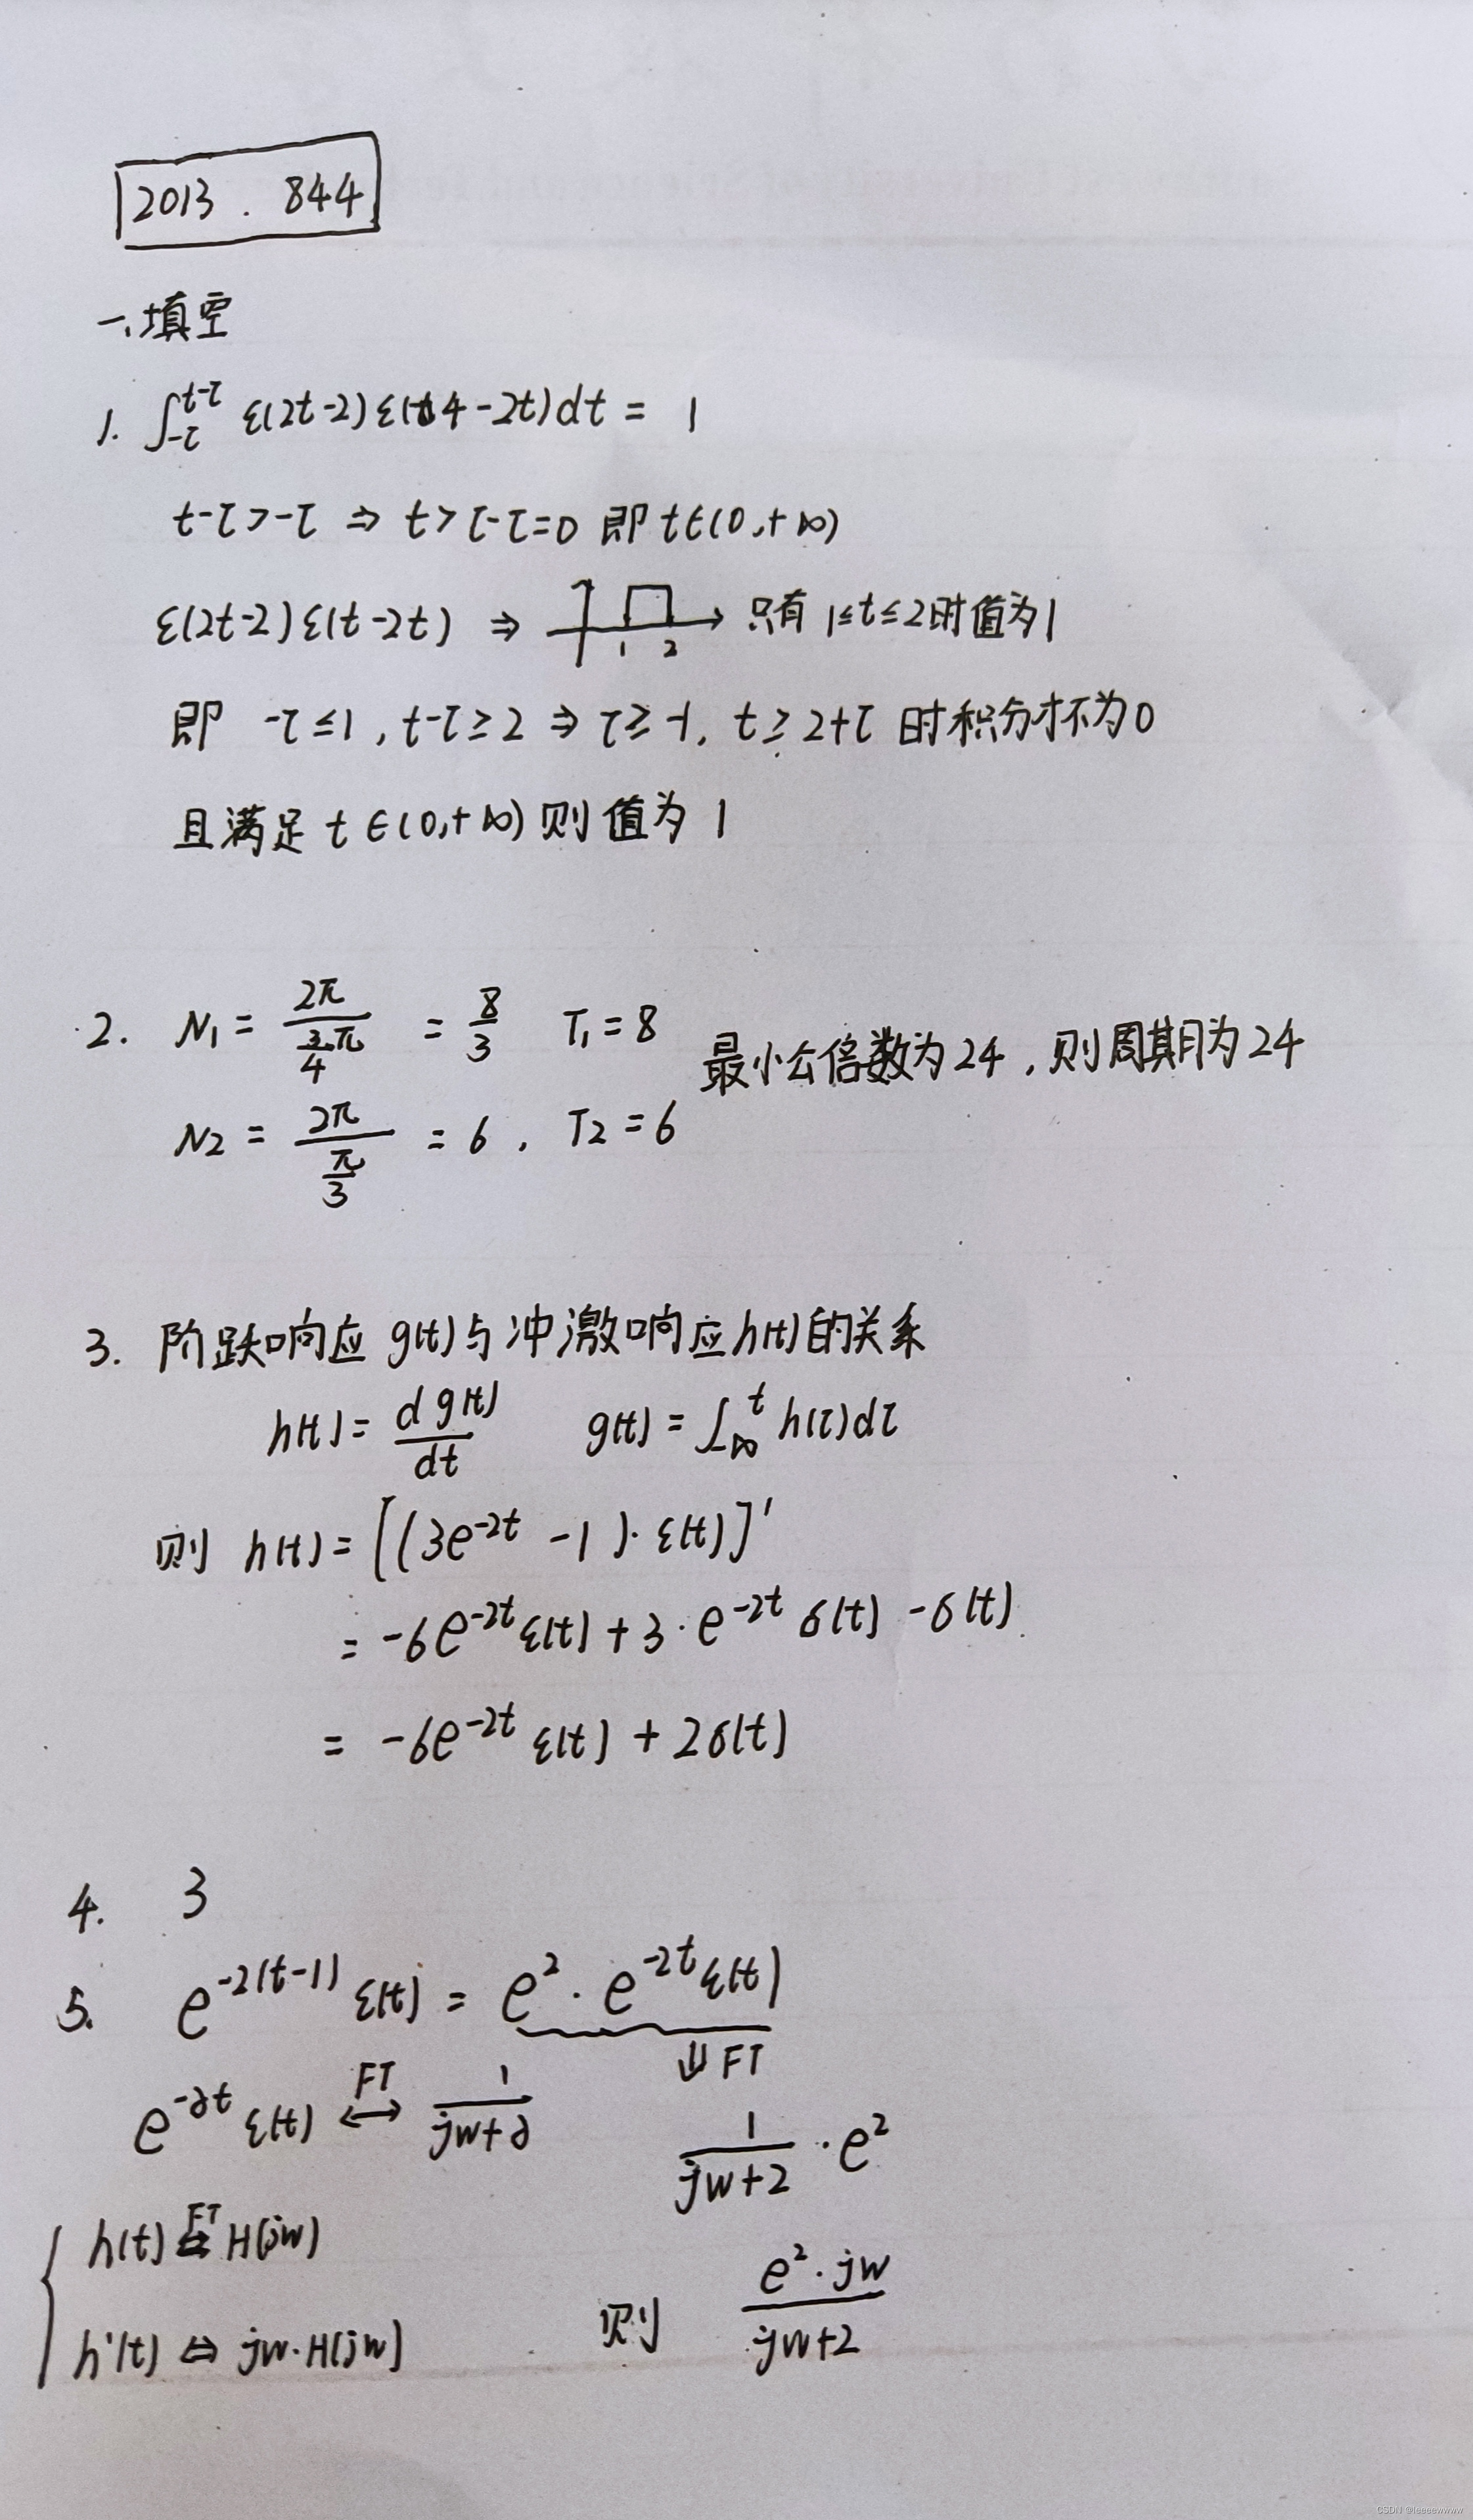 2013 . 844
一、填空
1. ∫_{-τ}^{t-τ} ε(2t-2) ε(4-2t) dt = 1
t-τ > -τ ⇒ t > τ-τ = 0 即 t∈(0,+∞)
ε(2t-2) ε(t-2t) ⇒ 1 2 只有 1≤t≤2时值为1
即 -τ≤1, t-τ≥2 ⇒ τ≥-1, t≥2+τ 时积分才不为0
且满足 t∈(0,+∞) 则值为1
2. N1 = 2π/(3/4 π) = 8/3 T1 = 8
最小公倍数为24, 则周期为24
N2 = 2π/(π/3) = 6, T2 = 6
3. 阶跃响应 g(t)与冲激响应h(t)的关系
h(t) = dg(t)/dt g(t) = ∫_{-∞}^{t} h(τ)dτ
则 h(t) = [(3e^{-2t} - 1)·ε(t)]'
= -6e^{-2t}ε(t) + 3·e^{-2t} δ(t) - δ(t)
= -6e^{-2t} ε(t) + 2δ(t)
4. 3
5. e^{-2(t-1)} ε(t) = e^2 · e^{-2t} ε(t)
⇓ FT
e^{-∂t} ε(t) FT ↔ 1/(jw+∂)
1/(jw+2) · e^2
h(t) FT ⇔ H(jw)
h'(t) ⇔ jw·H(jw)
则 e^2·jw/(jw+2)
CSDN @leeeewwww